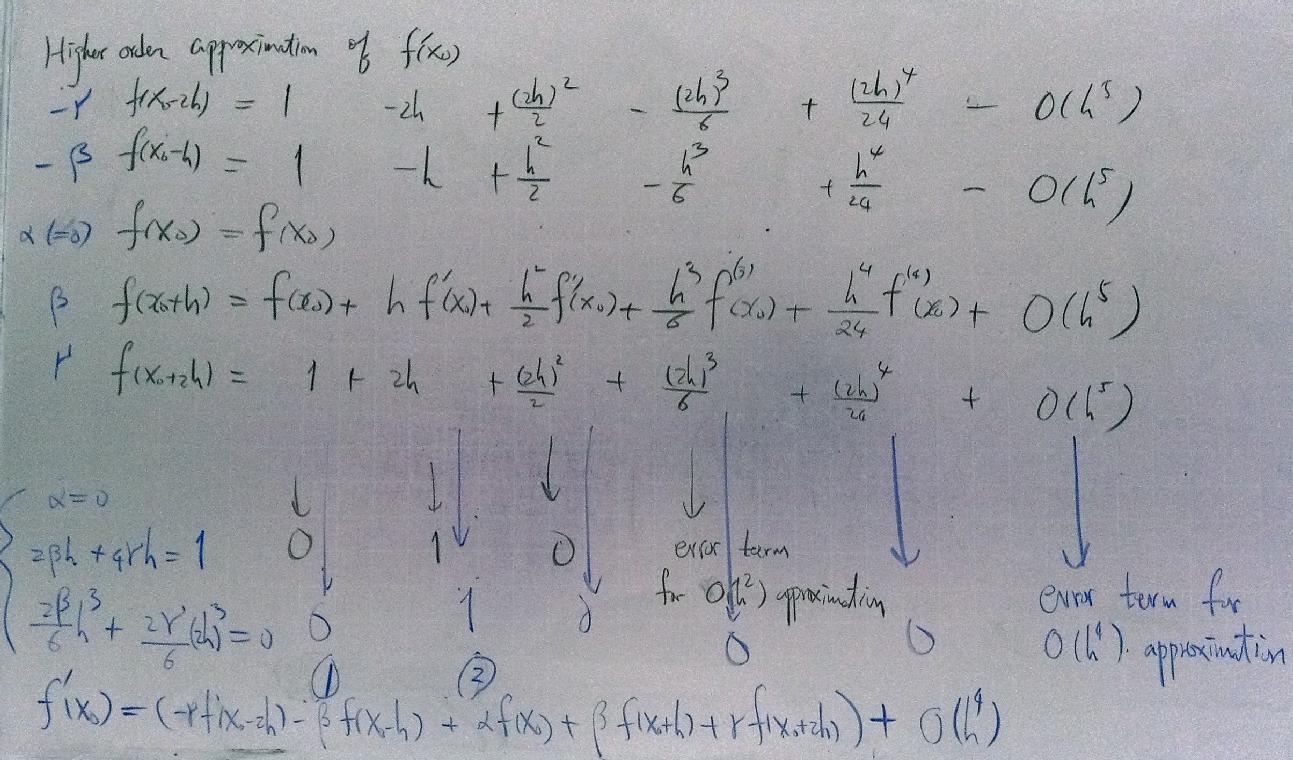 Higher order approximation of f'(x₀)
-γ f(x₀-2h) = 1 -2h + (2h)²/2 - (2h)³/6 + (2h)⁴/24 - O(h⁵)
-β f(x₀-h) = 1 -h + h²/2 - h³/6 + h⁴/24 - O(h⁵)
α(=0) f(x₀) = f(x₀)
β f(x₀+h) = f(x₀) + h f'(x₀) + h²/2 f''(x₀) + h³/6 f⁽³⁾(x₀) + h⁴/24 f⁽⁴⁾(x₀) + O(h⁵)
γ f(x₀+2h) = 1 + 2h + (2h)²/2 + (2h)³/6 + (2h)⁴/24 + O(h⁵)
↓ ↓ ↓ ↓ ↓ ↓ ↓ ↓ ↓
α=0
2βh + 4γh = 1 0 1 0 error term
for O(h²) approximation
2β/6 h³ + 2γ/6 (2h)³ = 0 0 1 0 0 0 error term for
O(h⁴) approximation
① ②
f'(x₀) = (-γf(x₀-2h) - βf(x₀-h) + αf(x₀) + βf(x₀+h) + γf(x₀+2h)) + O(h⁴)